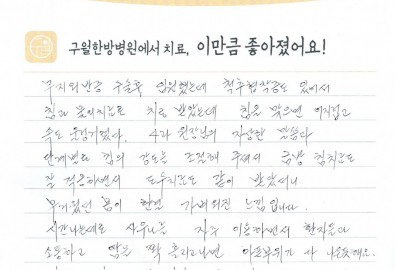 구월한방병원에서 치료, 이만큼 좋아졌어요!
무지외반증 수술후 입원했는데 척추협착증도 있어서
침과 물리치료로 치료 받았는데 침을 맞으면 어지럽고
속도 울렁거렸다. 4과 원장님의 자상한 말씀과
단계별로 침의 강도를 조절해 주셔서 금방 침치료도
잘 적응하면서 도수치료도 같이 받았더니
무거웠던 몸이 한결 가벼워진 느낌입니다.
시간나는대로 사우나를 자주 이용하면서 환자들과
소통하고 땀을 쫙 흘리고나면 아픈부위가 다 나은듯해요.